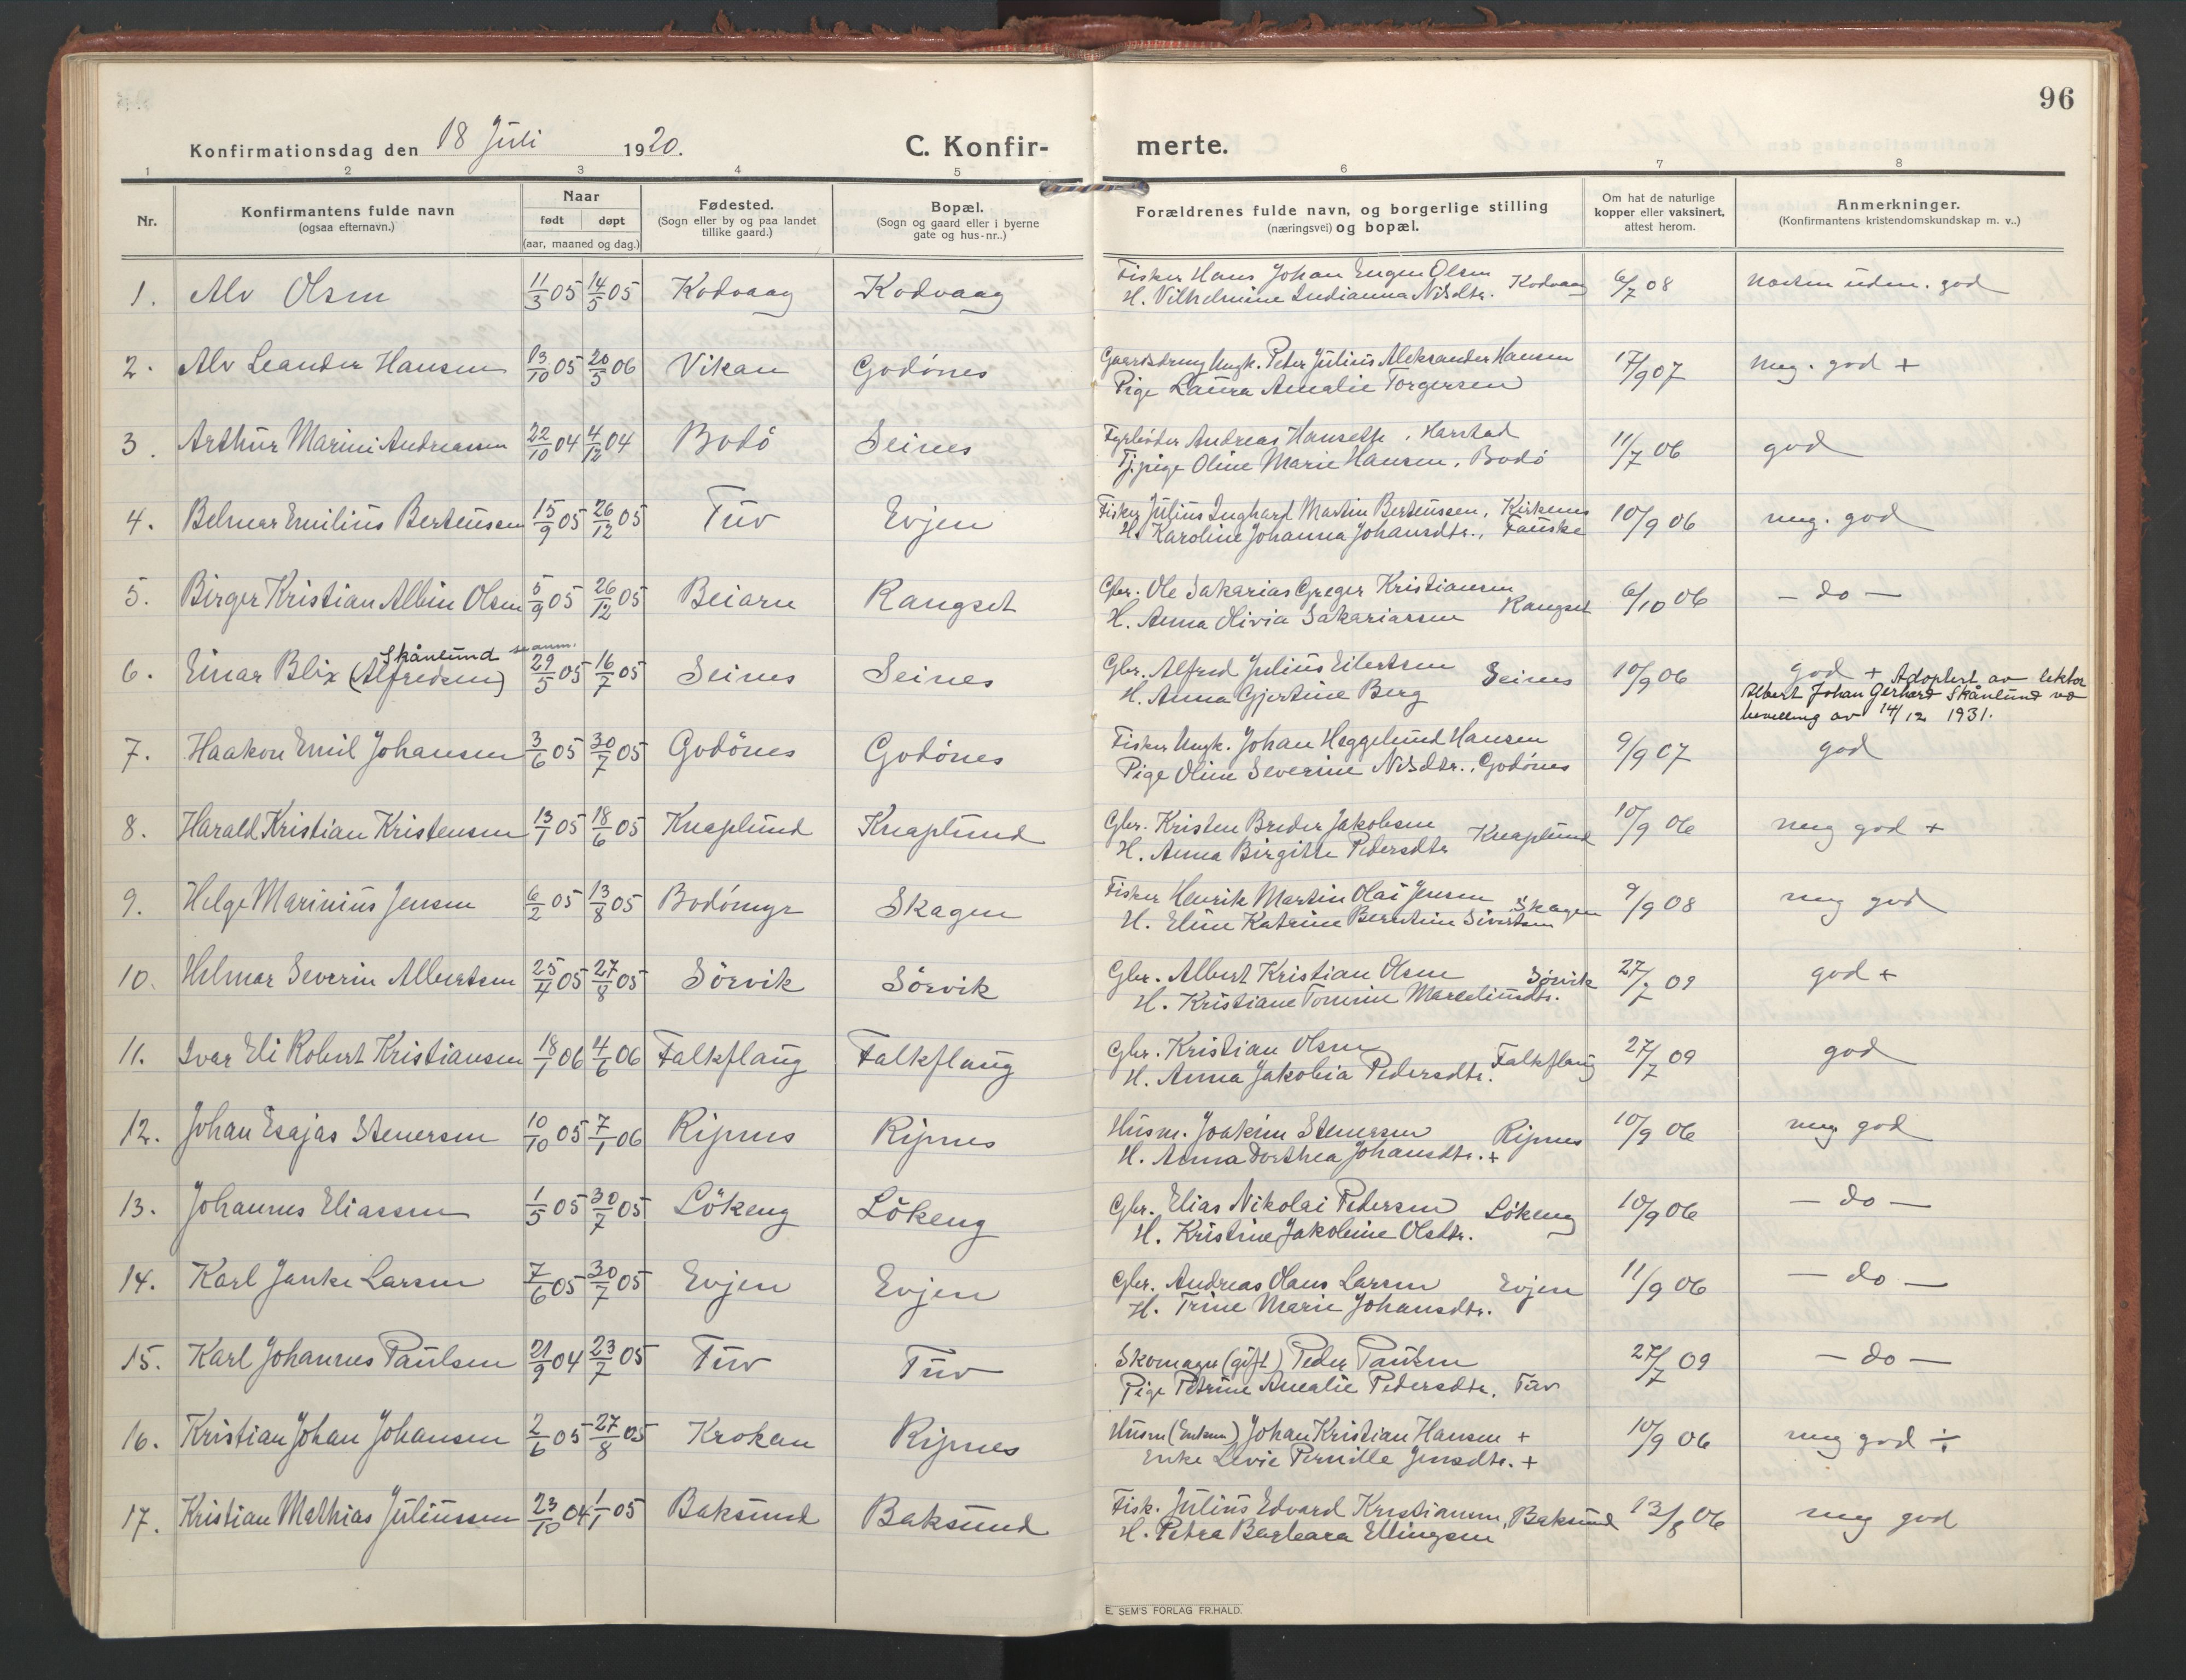 96
Konfirmationsdag den 18 Juli 1920.
C. Konfirmerte.
1 2 3 4 5 6 7 8
Nr.
Konfirmantens fulde navn
(ogsaa efternavn.)
Naar
født døpt
(aar, maaned og dag.)
Fødested.
(Sogn eller by og paa landet
tillike gaard.)
Bopæl.
(Sogn og gaard eller i byerne
gate og hus-nr..)
Forældrenes fulde navn, og borgerlige stilling
(næringsvei) og bopæl.
Om hat de naturlige
kopper eller vaksinert,
attest herom.
Anmerkninger.
(Konfirmantens kristendomskundskap m. v..)
1. Alv Olsen 11/3 05 14/5 05 Kodvaag Kodvaag Fisker Hans Johan Eugen Olsen
H. Vilhelmine Indianna Nilsdtr. Kodvaag 6/7 08 god
2. Alv Leander Hansen 13/10 05 20/5 06 Vikan Godönes Gaardsdreng Ungk. Peter Julius Aleksander Hansen
Pige Laura Amalie Torgersen 17/9 07 meg. god +
3. Arthur Marini Andreassen 22/10 04 4/12 04 Bodö Seines Fyrböder Andreas Hanseth, Harstad
Tj.pige Oline Marie Hansen, Bodö 11/7 06 god
4. Belmar Emilius Berteussen 15/9 05 26/12 05 Tuv Evjen Fisker Julius Inghard Martin Berteussen, Kirkenes
H. Karoline Johanna Johansdtr., Fauske 10/9 06 meg. god
5. Birger Kristian Albin Olsen 5/9 05 26/12 05 Beiarn Rangset Gbr. Ole Sakarias Greger Kristiansen
H. Anna Olivia Sakariassen Rangset 6/10 06 - do -
Skånlund se anm.
6. Einar Blix (Alfredsen) 29/5 05 16/7 05 Seines Seines Gbr. Alfred Julius Eilertsen
H. Anna Gjertine Berg Seines 10/9 06 god + Adoptert av lektor
Albert Johan Gerhard Skånlund ved
bevilling av 14/12 1931.
7. Haakon Emil Johansen 3/6 05 30/7 05 Godönes Godönes Fisker Ungk. Johan Heggelund Hansen
Pige Oline Severine Nilsdtr., Godönes 9/9 07 god
8. Harald Kristian Kristensen 13/1 05 18/6 05 Knaplund Knaplund Gbr. Kristen Breder Jakobsen
H. Anna Birgitte Pedersdtr Knaplund 10/9 06 meg god +
9. Helge Marinius Jensen 6/2 05 13/8 05 Bodömyr Skagen Fisker Henrik Martin Olai Jensen
H. Eline Katrine Berntine Sivertsen Skagen 9/9 08 meg god
10. Helmar Severin Albertsen 25/4 05 27/8 05 Sörvik Sörvik Gbr. Albert Kristian Olsen
H. Kristiane Tomine Marceliusdtr. Sörvik 27/7 09 god +
11. Ivar Eli Robert Kristiansen 18/1 06 4/6 06 Falkflaug Falkflaug Gbr. Kristian Olsen
H. Anna Jakobia Pedersdtr. Falkflaug 27/7 09 god
12. Johan Esajas Stenersen 10/10 05 7/1 06 Ripnes Ripnes Husm. Joakim Stenersen
H. Anna Dorthea Johansdtr. + Ripnes 10/9 06 meg god
13. Johannes Eliassen 1/5 05 30/7 05 Lökeng Lökeng Gbr. Elias Nikolai Pedersen
H. Kristine Jakobine Olsdtr. Lökeng 10/9 06 - do -
14. Karl Janke Larsen 7/6 05 30/7 05 Evjen Evjen Gbr. Andreas Olaus Larsen
H. Trine Marie Johansdtr. Evjen 11/9 06 - do -
15. Karl Johannes Paulsen 21/9 04 23/7 05 Tuv Tuv Skomager (gift) Peder Paulsen
Pige Petrine Amalie Pedersdtr. Tuv 27/7 09 - do -
16. Kristian Johan Johansen 2/6 05 27/8 05 Krokan Ripnes Husm (Enkem) Johan Kristian Hansen +
Enke Levie Pernille Jensdtr. + 10/9 06 meg god ÷
17. Kristian Mathias Juliussen 23/10 04 1/1 05 Baksund Baksund Fisk. Julius Edvard Kristiansen, Baksund
H. Petra Barbara Ellingsen 13/8 06 meg god
E. SEM'S FORLAG FR.HALD.